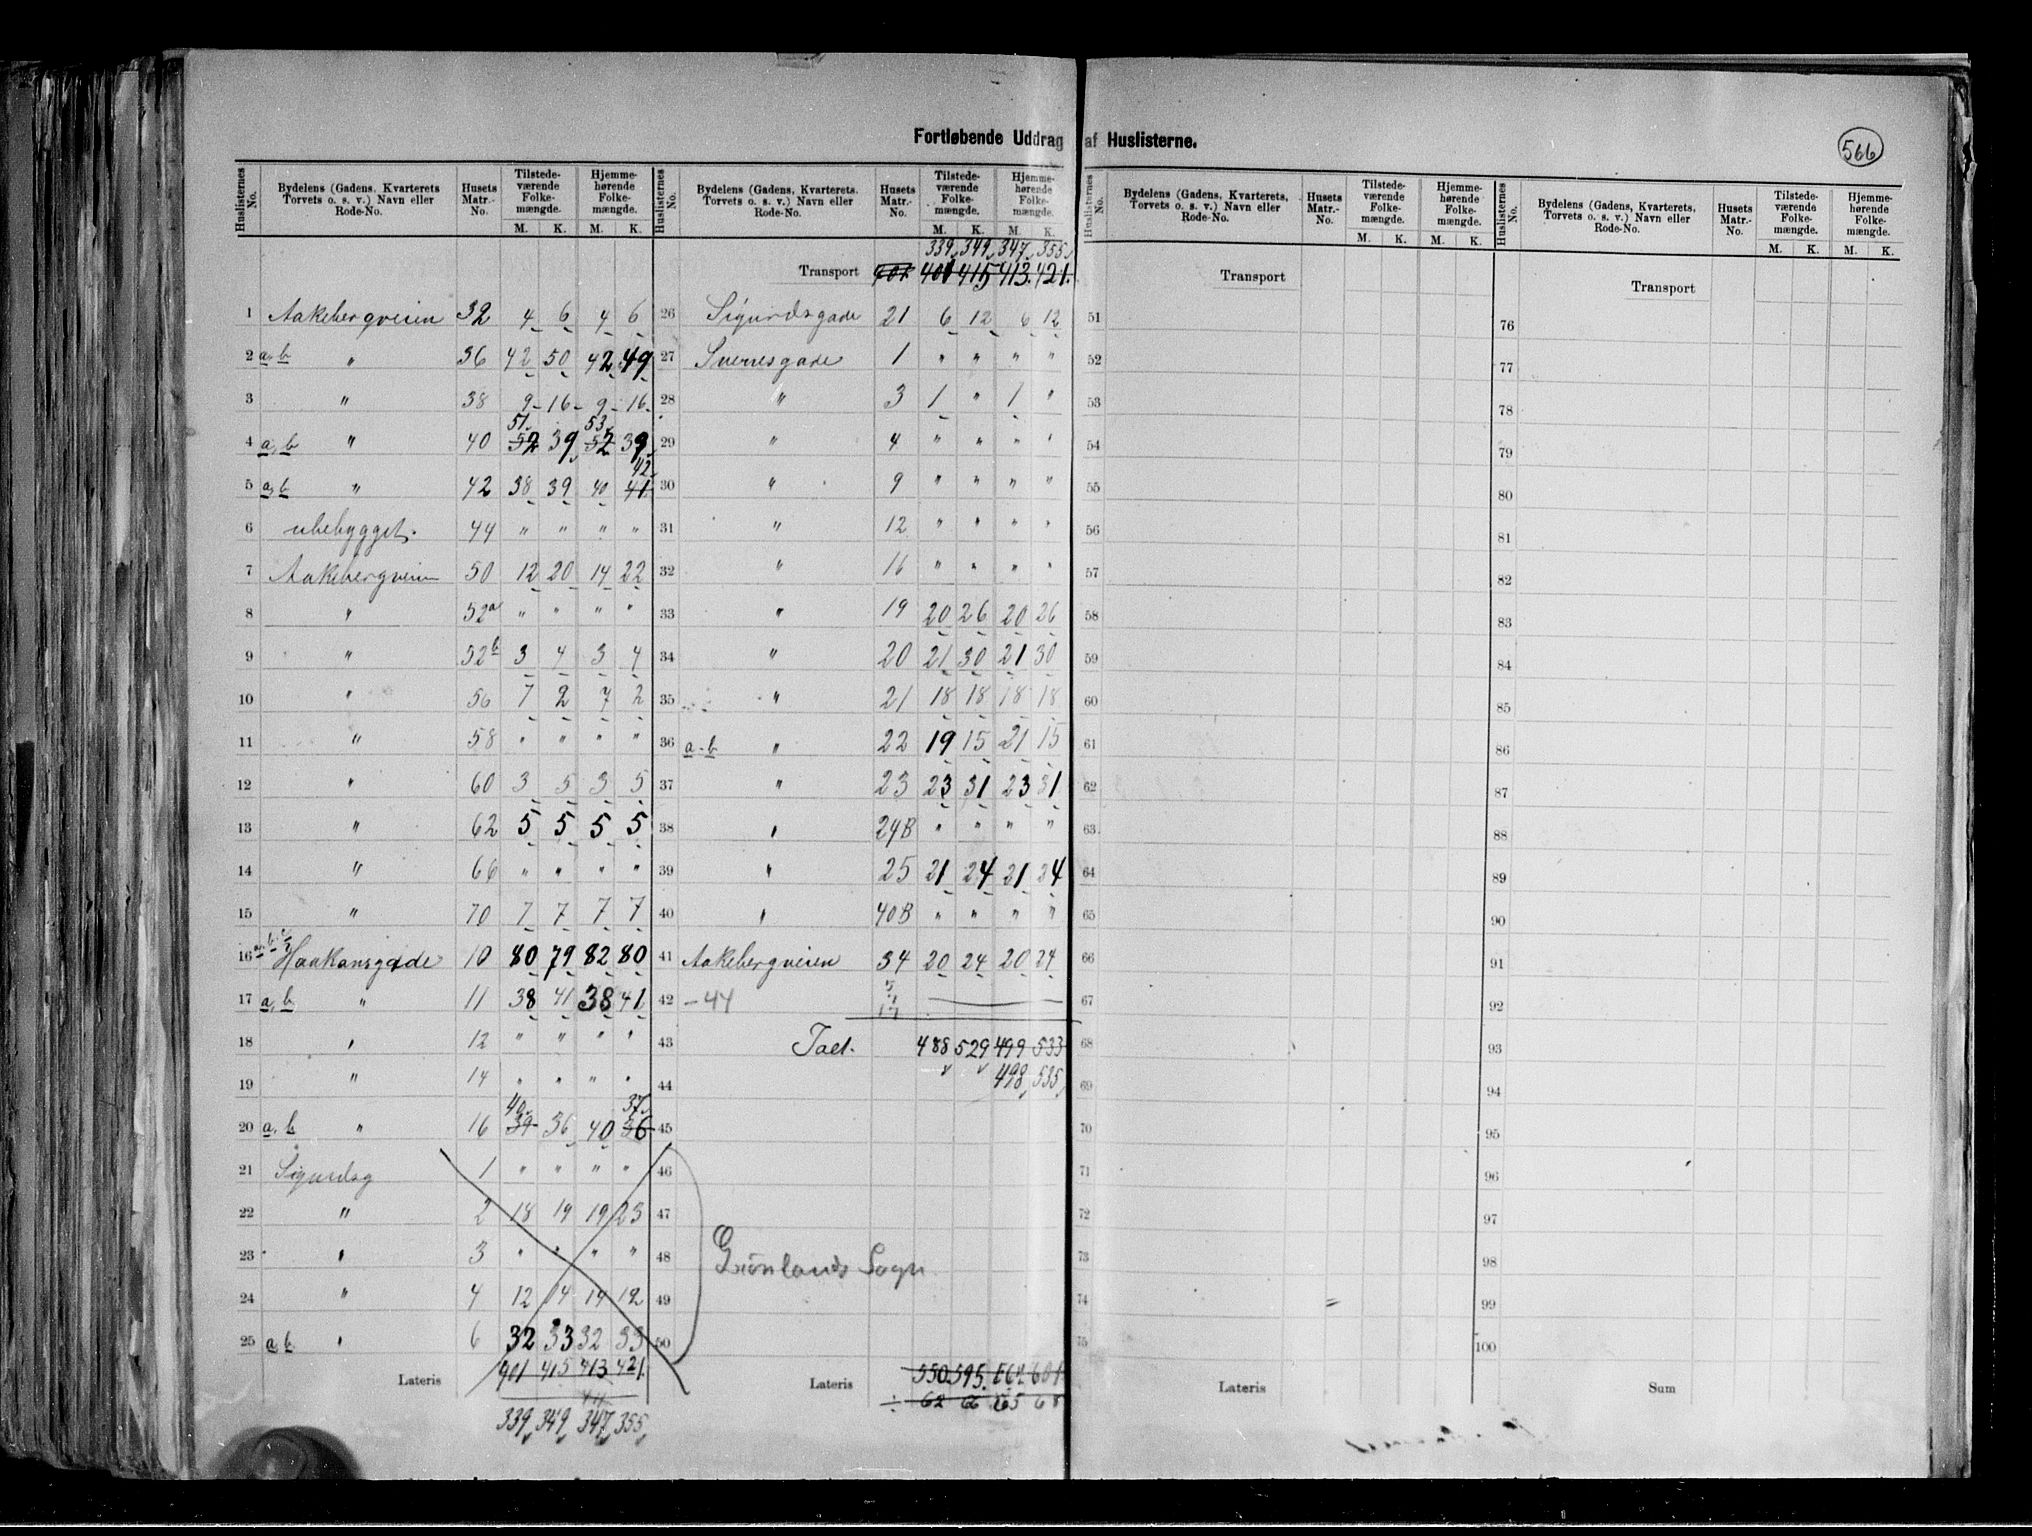 Fortløbende Uddrag af Huslisterne.
566
Huslisternes No. | Bydelens (Gadens, Kvarterets Torvets o. s. v.) Navn eller Rode-No. | Husets Matr.-No. | Tilstedeværende Folkemængde. M. K. | Hjemmehørende Folkemængde. M. K.
1 Aakebergveien 32 4 6 4 6
2 a, b " 36 42 50 42 49
3 " 38 9 16 9 16
51 53
4 a, b " 40 52 39 52 39
42
5 a, b " 42 38 39 40 41
6 ubebygget. 44 " " " "
7 Aakebergveien 50 12 20 14 22
8 " 52a " " " "
9 " 52b 3 4 3 4
10 " 56 7 2 7 2
11 " 58 " " " "
12 " 60 3 5 3 5
13 " 62 5 5 5 5
14 " 66 " " " "
15 " 70 7 7 7 7
16 Haakonsgade 10 80 79 82 80
17 a, b " 11 38 41 38 41
18 " 12 " " " "
19 " 14 " " " "
40 37
20 a, b " 16 39 36 40 36
21 Sigurdsg 1 " " " "
22 " 2 18 19 19 23
23 " 3 " " " "
24 " 4 12 14 14 12
25 a b " 6 32 33 32 33
Lateris 401 415 413 421.
339 349 347 355
Huslisternes No. | Bydelens (Gadens, Kvarterets. Torvets o. s. v.) Navn eller Rode-No. | Husets Matr.-No. | Tilstedeværende Folkemængde. M. K. | Hjemmehørende Folkemængde. M. K.
339 349 347 355
Transport 401 401 415 413. 421.
26 Sigurdsgade 21 6 12 6 12
27 Sverresgade 1 " " " "
28 " 3 1 " 1 "
29 " 4 " " " "
30 " 9 " " " "
31 " 12 " " " "
32 " 16 " " " "
33 " 19 20 26 20 26
34 " 20 21 30 21 30
35 " 21 18 18 18 18
36 a-b " 22 19 15 21 15
37 " 23 23 31 23 31
38 " 24B " " " "
39 " 25 21 24 21 24
40 " 40B " " " "
41 Aakebergveien 34 20 24 20 24
42 -44
43 Tael. 488 529 499 533
44 498 535
45
46
47
48 Grönlands Sogn
49
50
Lateris 550. 595. 662 601
÷ 62 66 65 68
Huslisternes No. | Bydelens (Gadens, Kvarterets, Torvets o. s. v.) Navn eller Rode-No. | Husets Matr.-No. | Tilstedeværende Folkemængde. M. K. | Hjemmehørende Folkemængde. M. K.
Transport
51
52
53
54
55
56
57
58
59
60
61
62
63
64
65
66
67
68
69
70
71
72
73
74
75
Lateris
Huslisternes No. | Bydelens (Gadens, Kvarterets, Torvets o. s. v.) Navn eller Rode-No. | Husets Matr.-No. | Tilstedeværende Folkemængde. M. K. | Hjemmehørende Folkemængde. M. K.
Transport
76
77
78
79
80
81
82
83
84
85
86
87
88
89
90
91
92
93
94
95
96
97
98
99
100
Sum